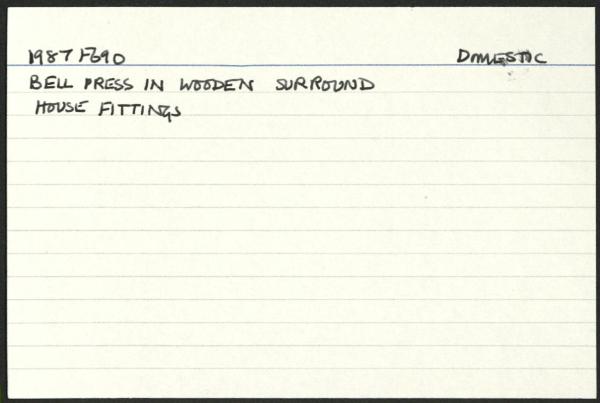 1987 F690 DOMESTIC
BELL PRESS IN WOODEN SURROUND
HOUSE FITTINGS